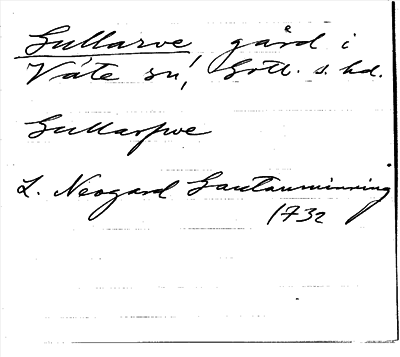 Gullarve, gård i
Väte sn, Gotl. s. hd.
Gullarfwe
L. Neogard Gautauminning
1732